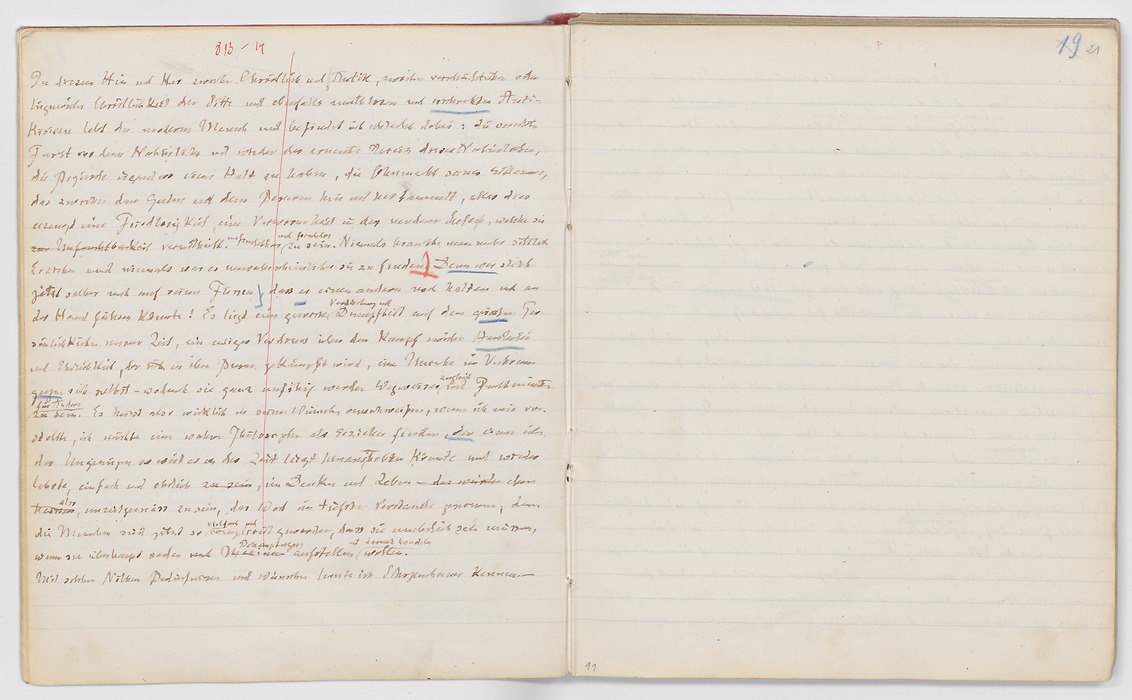 313 – 14
19 21
In diesem Hin und Her zwischen Christlich und Antik, zwischen verschüchterter oder
lügnerischer Christlichkeit der Sitte und ebenfalls muthlosem und Anti-
kisiren lebt der moderne Mensch und befindet sich schlecht dabei: die vererbte
Furcht vor dem Natürlichen und wieder der erneute Anreiz dieses Natürlichen,
die Begierde irgendwo einen Halt zu haben, die Ohnmacht seines Erkennens,
das zwischen dem Guten und dem Besseren hin und her taumelt, alles dies
erzeugt eine Friedlosigkeit, eine Verworrenheit in der modernen Seele, welche sie
zur Unfruchtbarkeit verurtheilt unfruchtbar und freudelos zu sein. Niemals brauchte man mehr sittliche
Erzieher und niemals war es unwahrscheinlicher sie zu finden. Denn wer steht
jetzt selber noch auf seinen Füssen, dass er einen anderen noch halten und an
der Hand führen könnte! Es liegt eine gewisse Verdüsterung und Dumpfheit auf den Per-
sönlichkeiten unserer Zeit, ein ewiger Verdruss über den Kampf zwischen Heuchelei
und Ehrlichkeit, der in ihrem Busen gekämpft wird, eine Unruhe im Vertrauen
sich selbst – wodurch sie ganz unfähig werden Wegweiser zugleich und Zuchtmeister
für Andere zu sein. Es heisst also wirklich in seinen Wünschen ausschweifen, wenn ich mir vor-
stellte, ich möchte einen wahren Philosophen als Erzieher finden, der einen über
das Ungenügen so weit es in der Zeit liegt hinausheben könnte und wieder
lehrte, einfach und ehrlich zu sein, im Denken und Leben – das würde eben
heissen, also unzeitgemäss zu sein, das Wort im tiefsten Verstande genommen, denn
die Menschen sind jetzt so vielfach und geworden, dass sie unehrlich sein müssen,
wenn sie überhaupt reden und Behauptungen aufstellen und darnach handeln wollen.
Mit solchen Nöthen Bedürfnissen und Wünschen lernte ich Schopenhauer kennen. –